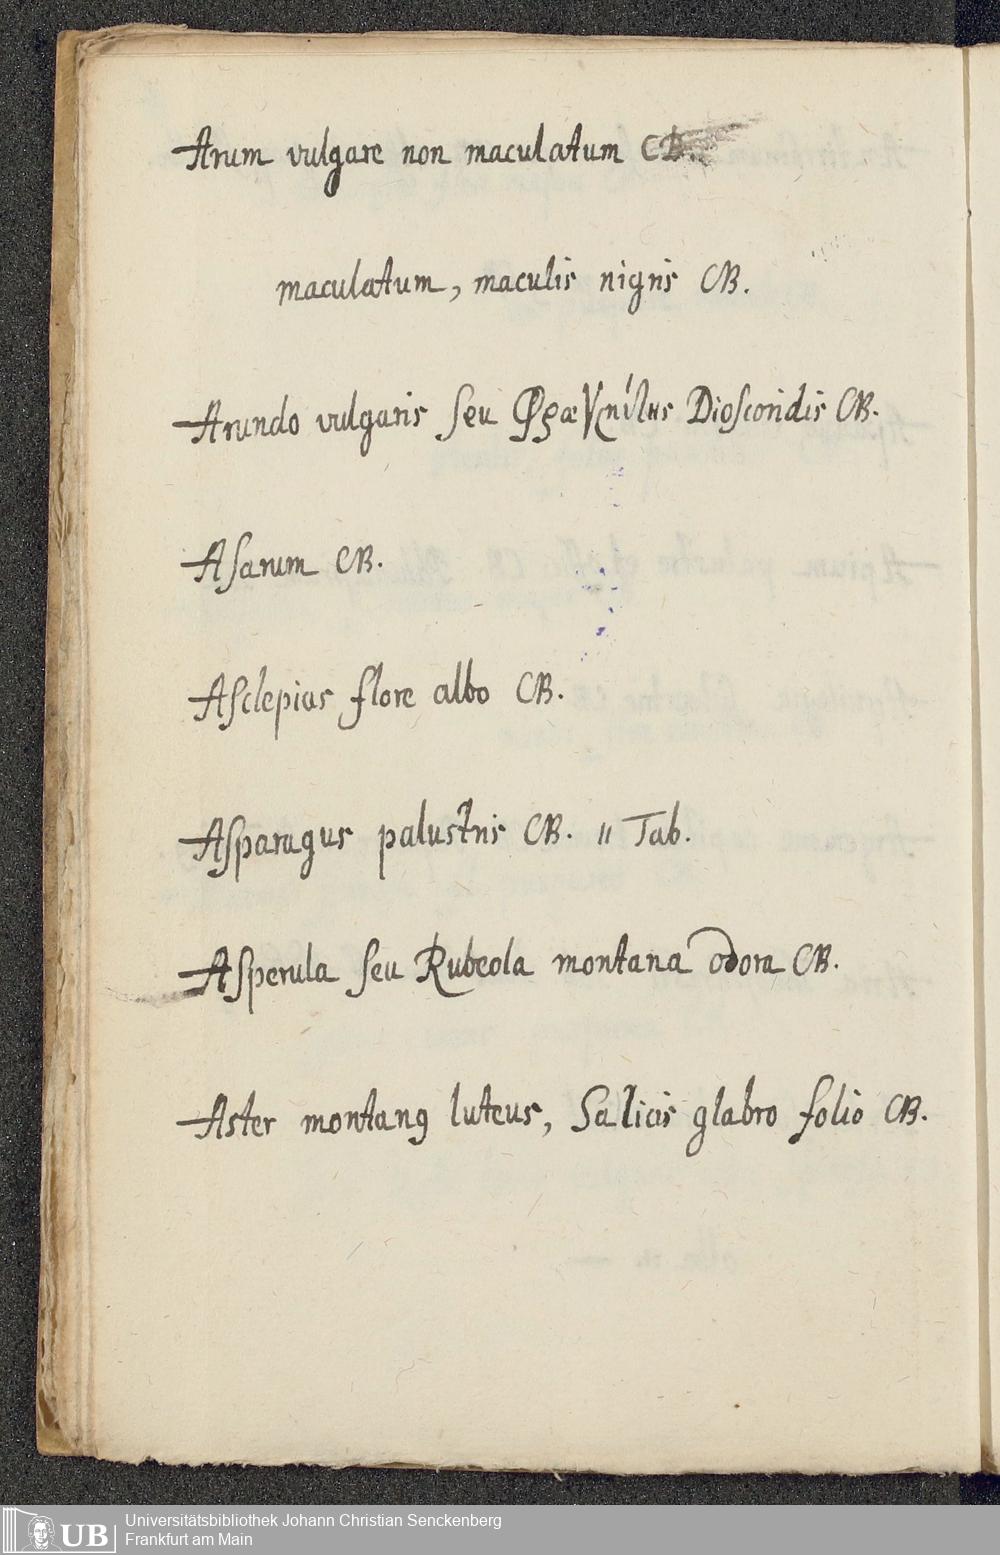 Arum vulgare non maculatum CB.
maculatum, maculis nigris CB.
Arundo vulgaris seu Dioscoridis CB.
Asarum CB.
Asclepias flore albo CB.
Asparagus palustris CB. " Tab.
Asperula seu Rubeola montana odora CB.
Aster montanꝰ luteus, Salicis glabro folio CB.
UB
Universitätsbibliothek Johann Christian Senckenberg
Frankfurt am Main